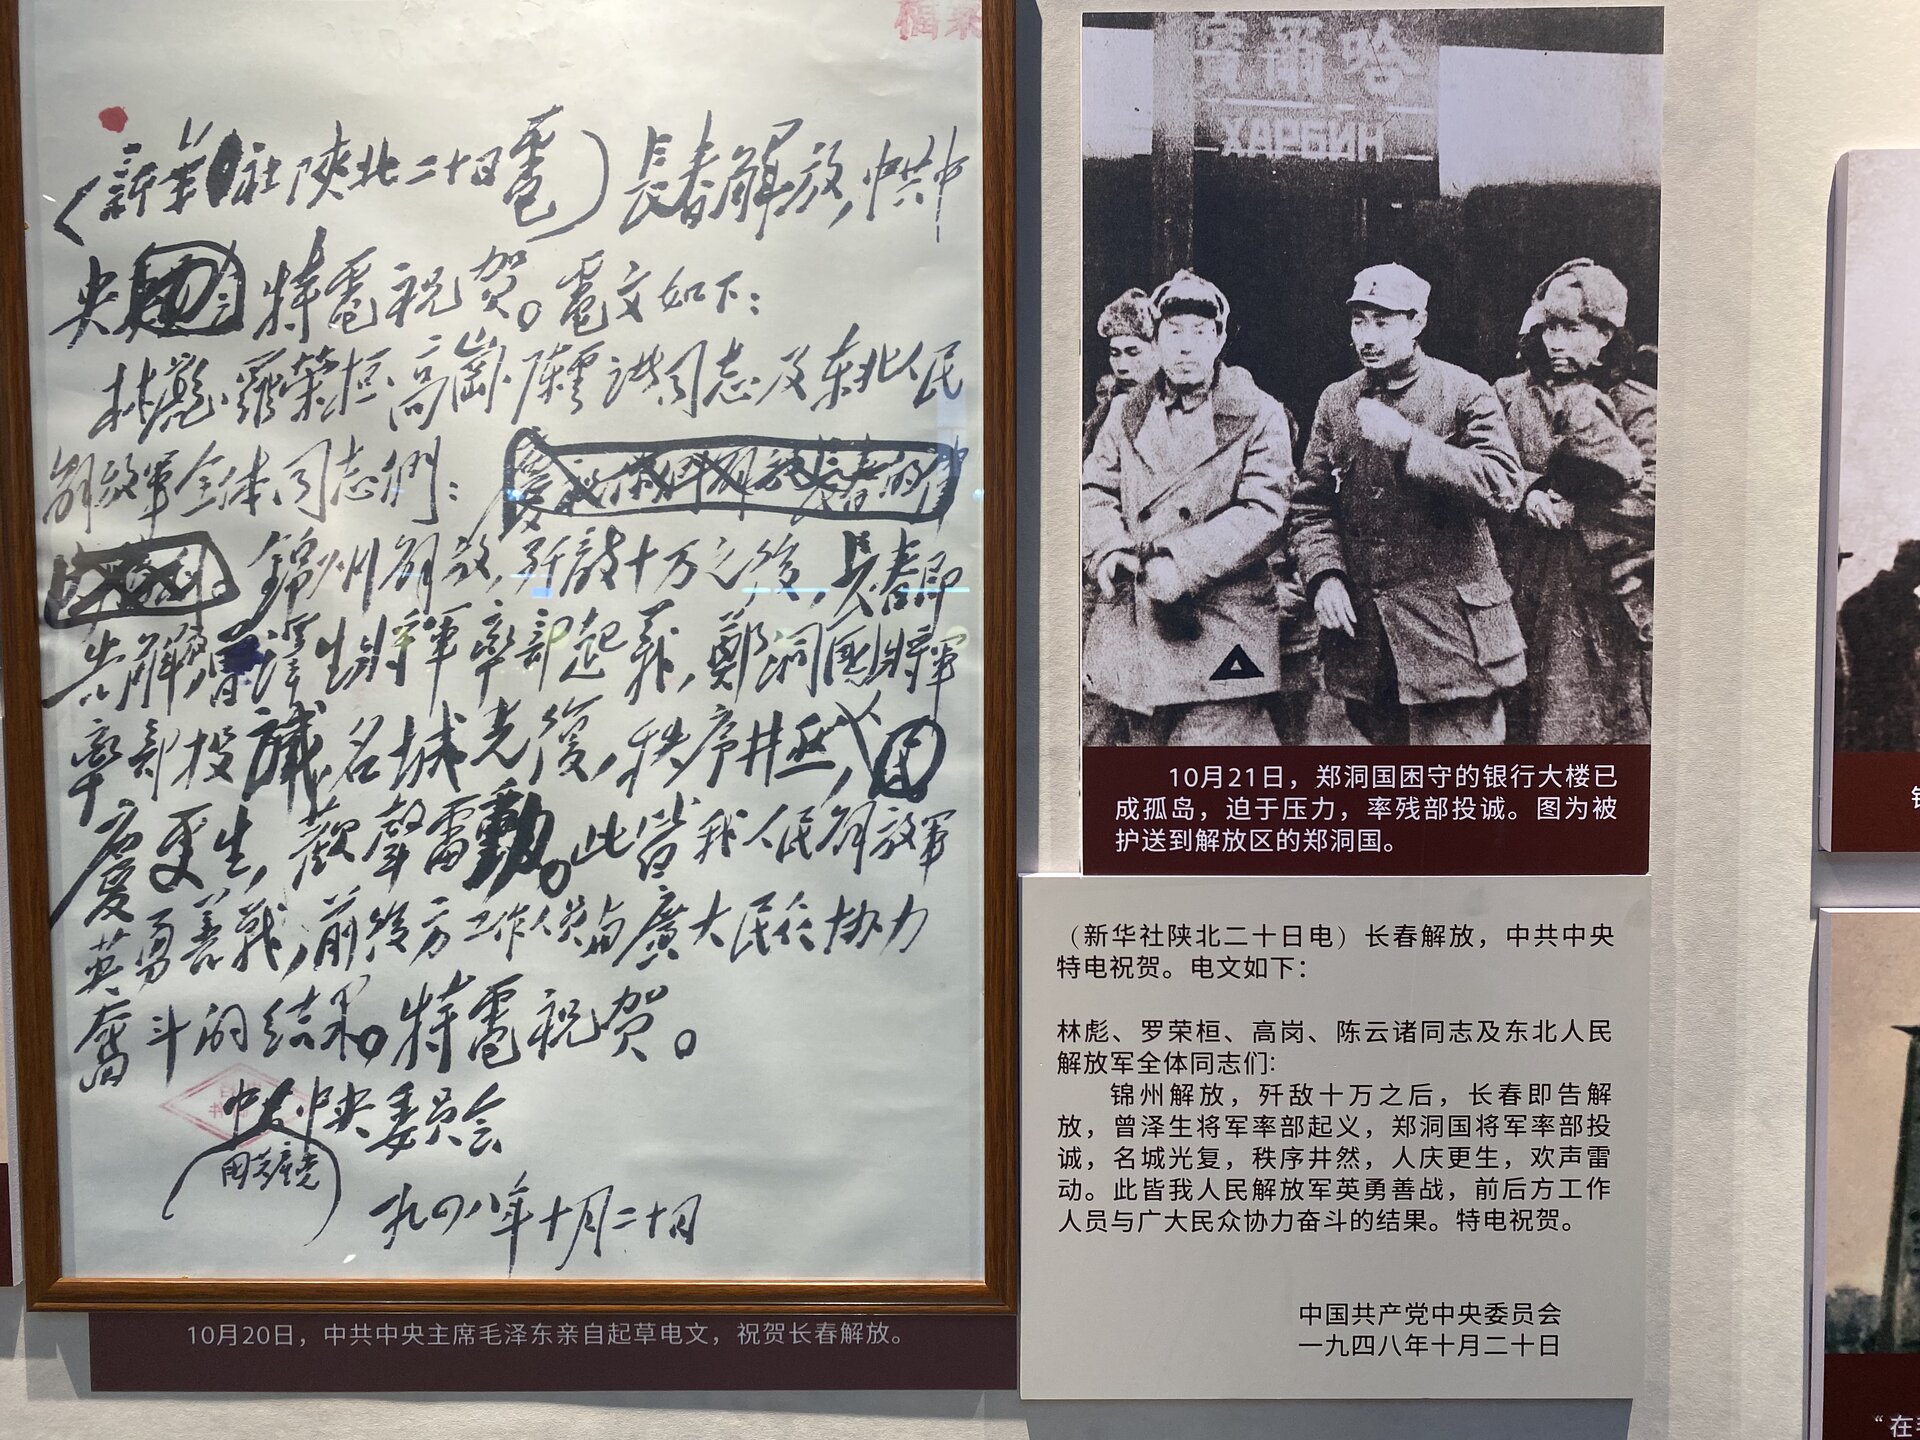 （新華社陝北二十日電）長春解放，中共中
央特電祝賀。電文如下：
林彪、羅榮桓、高崗、陳雲諸同志及东北人民
解放軍全体同志們：
錦州解放，歼敵十万之後，長春即
告解放，曾澤生將軍率部起義，鄭洞國將軍
率部投誠，名城光復，秩序井然，人
慶更生，歡聲雷動。此皆我人民解放軍
英勇善戰，前後方工作人员与廣大民众協力
奮斗的结果。特電祝賀。
中共中央委員会
一九四八年十月二十日
10月20日，中共中央主席毛泽东亲自起草电文，祝贺长春解放。
賓爾哈
ХАРБИН
10月21日，郑洞国困守的银行大楼已
成孤岛，迫于压力，率残部投诚。图为被
护送到解放区的郑洞国。
（新华社陕北二十日电）长春解放，中共中央
特电祝贺。电文如下：
林彪、罗荣桓、高岗、陈云诸同志及东北人民
解放军全体同志们:
锦州解放，歼敌十万之后，长春即告解
放，曾泽生将军率部起义，郑洞国将军率部投
诚，名城光复，秩序井然，人庆更生，欢声雷
动。此皆我人民解放军英勇善战，前后方工作
人员与广大民众协力奋斗的结果。特电祝贺。
中国共产党中央委员会
一九四八年十月二十日
“在